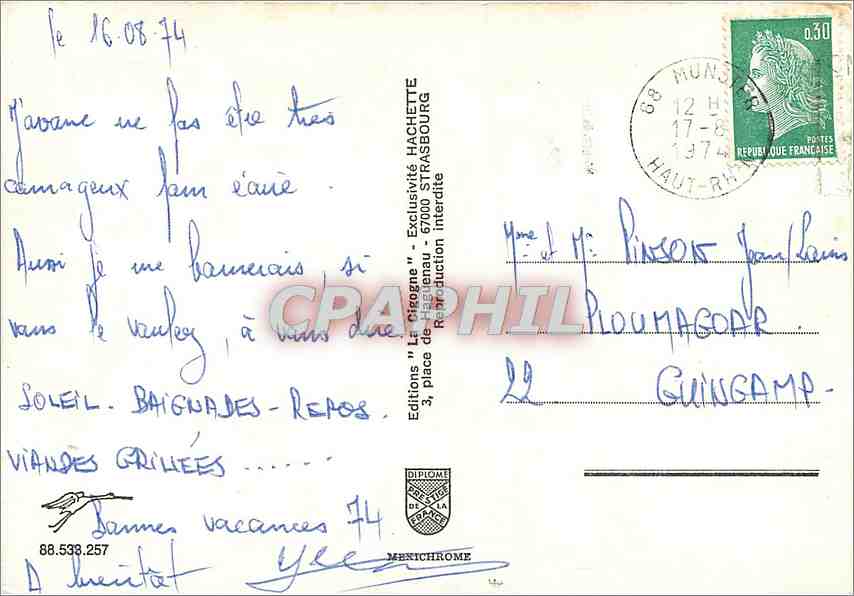 le 16.08.74
J'avoue ne pas être très
courageux pour écrire.
Aussi je me bornerais, si
vous le voulez, à vous dire
SOLEIL - BAIGNADES - REPOS.
VIANDES GRILLÉES......
Bonnes vacances 74
A bientôt
88.533.257
Editions "La Cigogne" - Exclusivité HACHETTE
3, place de Haguenau - 67000 STRASBOURG
Reproduction interdite
DIPLOME
PRESTIGE
DE LA
FRANCE
MEXICHROME
CPAPHIL
0,30
POSTES
REPUBLIQUE FRANCAISE
68 MUNSTER
12 H
17-8
1974
HAUT-RHIN
Mme et Mr PINSON Jean/Louis
PLOUMAGOAR.
22 GUINGAMP-